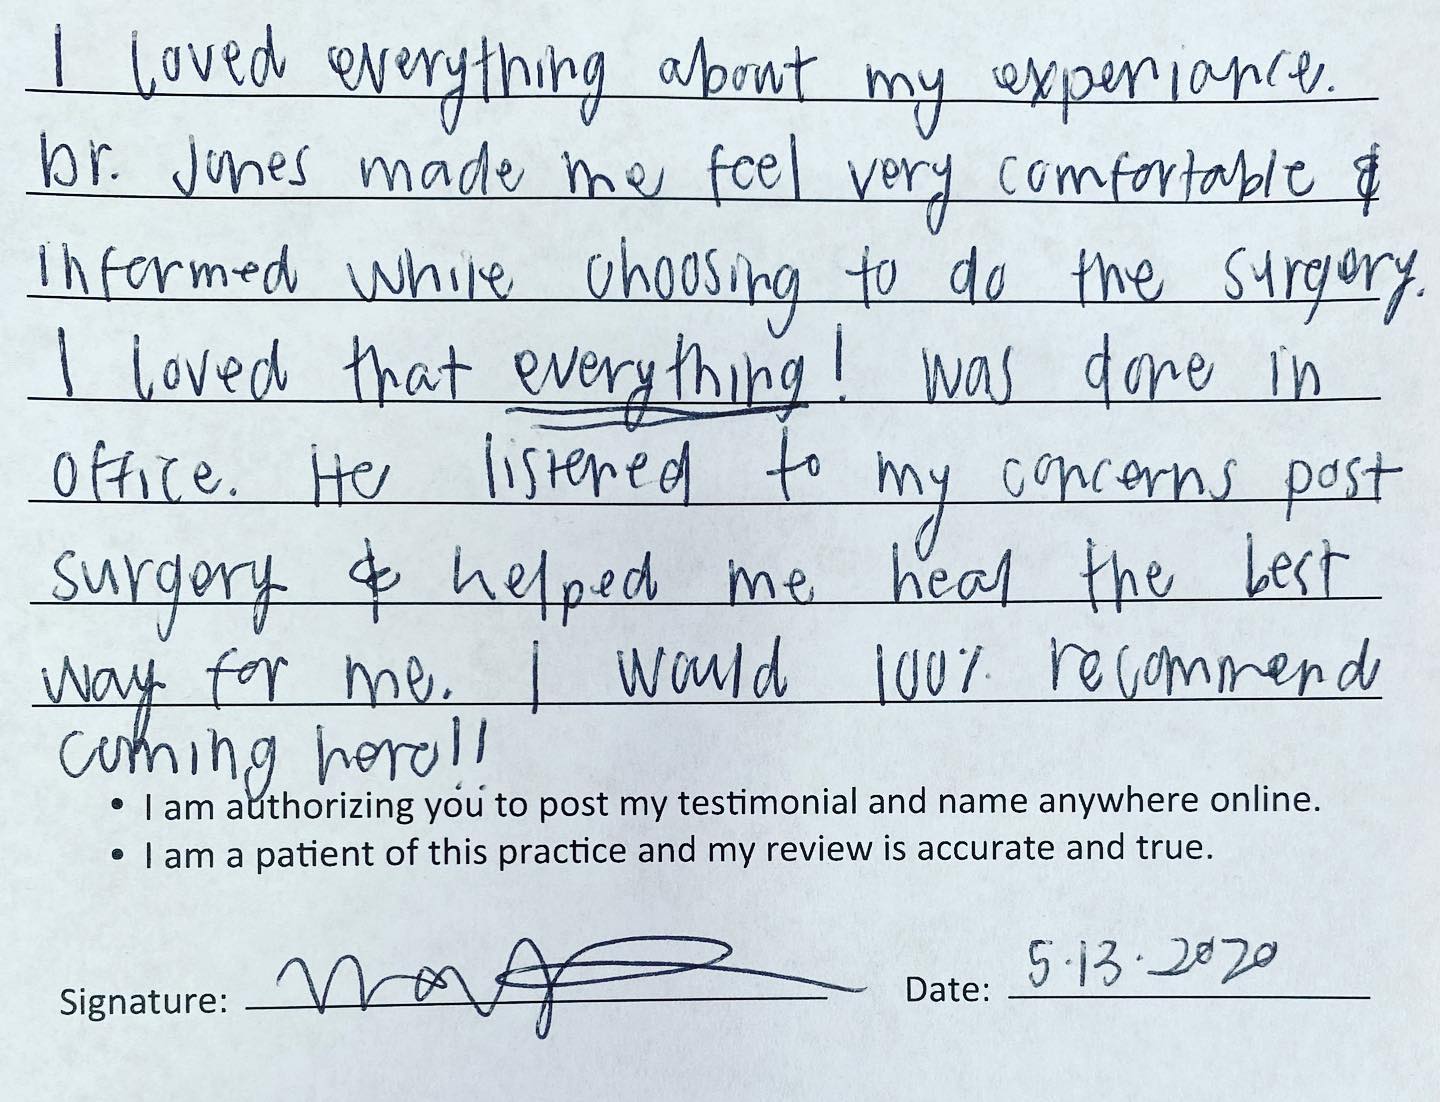 I loved everything about my experiance.
Dr. Jones made me feel very comfortable &
informed while choosing to do the surgery.
I loved that everything! was done in
office. He listened to my concerns post
surgery & helped me heal the best
way for me. I would 100% recommend
coming here!!
• I am authorizing you to post my testimonial and name anywhere online.
• I am a patient of this practice and my review is accurate and true.
Signature: Date: 5.13.2020